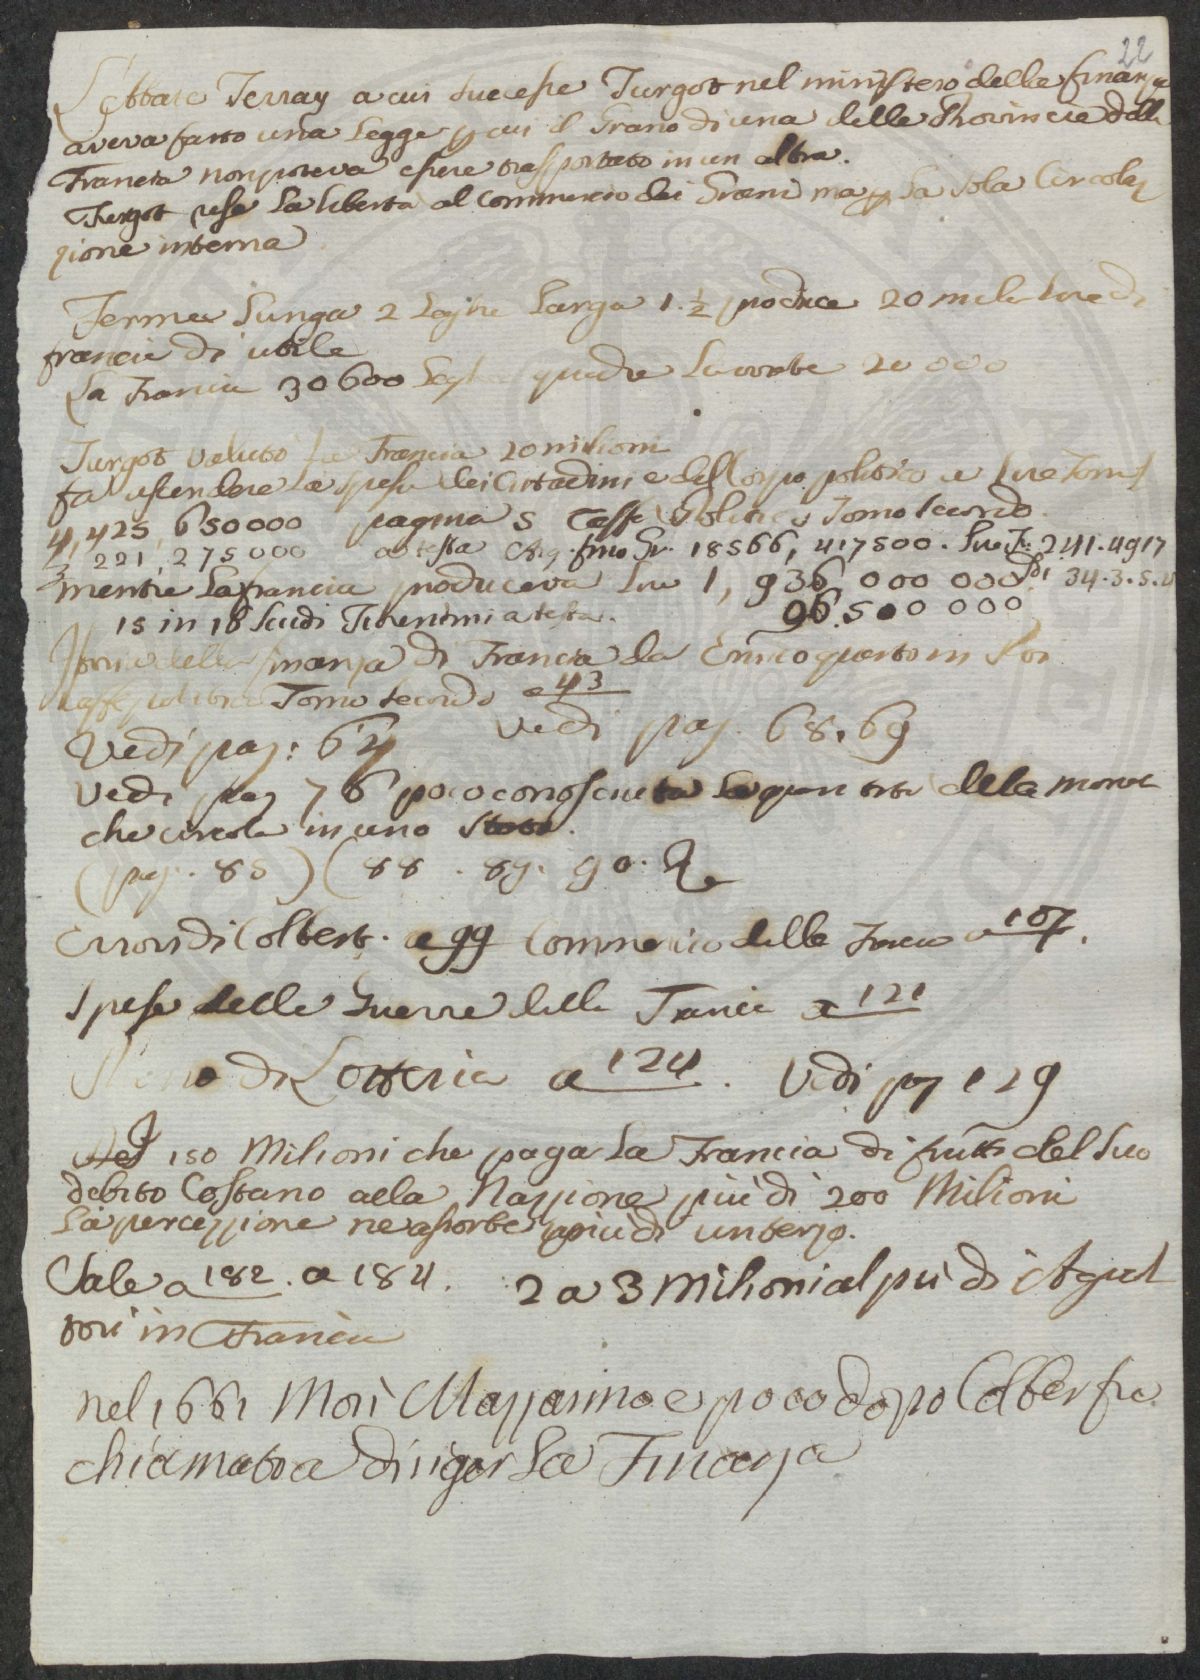 22
L'Abbate Terray a cui successe Turgot nel ministero delle finanze
aveva fatto una Legge p cui il Grano di una delle Provincie della
Francia non poteva essere trasportato in un altra.
Turgot rese la libertà al Commercio dei Grani ma p la sola Circola
zione interna
Ferma Lunga 2 Leghe Larga 1. ½ produce 20 mila Lire di
francia di utile
La Francia 30600 Leghe quadre Sarebbe 20000
Turgot valutò la Francia 20 milioni
fa ascendere la spesa dei Cittadini e del Corpo politico a Lire Torn
4,425,650000 pagina 5 Tomo secondo.
221,275000 a testa 18566,417500. Lire 241.4917
mentre la francia produceva Lire 1,936,000 000 34.3.5.
15 in 18 Scudi Fiorentini a testa. 96.500 000
Istoria delle finanza di Francia da Enrico quarto in
Tomo secondo a 43
Vedi pag: 64 Vedi pag. 68.69
Vedi pag 76 poco conosciuta la quantità della monet
che circola in uno Stato.
(pag. 85) (88. 89. 90. &
Errori di Colbert. a 99 Commercio delle a 107.
Spese delle Guerre della Francia a 121
di Lotteria a 124. Vedi pag 129
Dei 150 Milioni che paga la Francia di frutti del Suo
debito Costano alla Nazzione più di 200 Milioni
La percezzione ne assorbe più di un terzo.
Sale a 182. a 184. 2 a 3 Milioni al più di Agricol
tori in Francia
nel 1661 Morì Mazzarino e poco dopo Colber fu
chiamato a diriger la Finanza